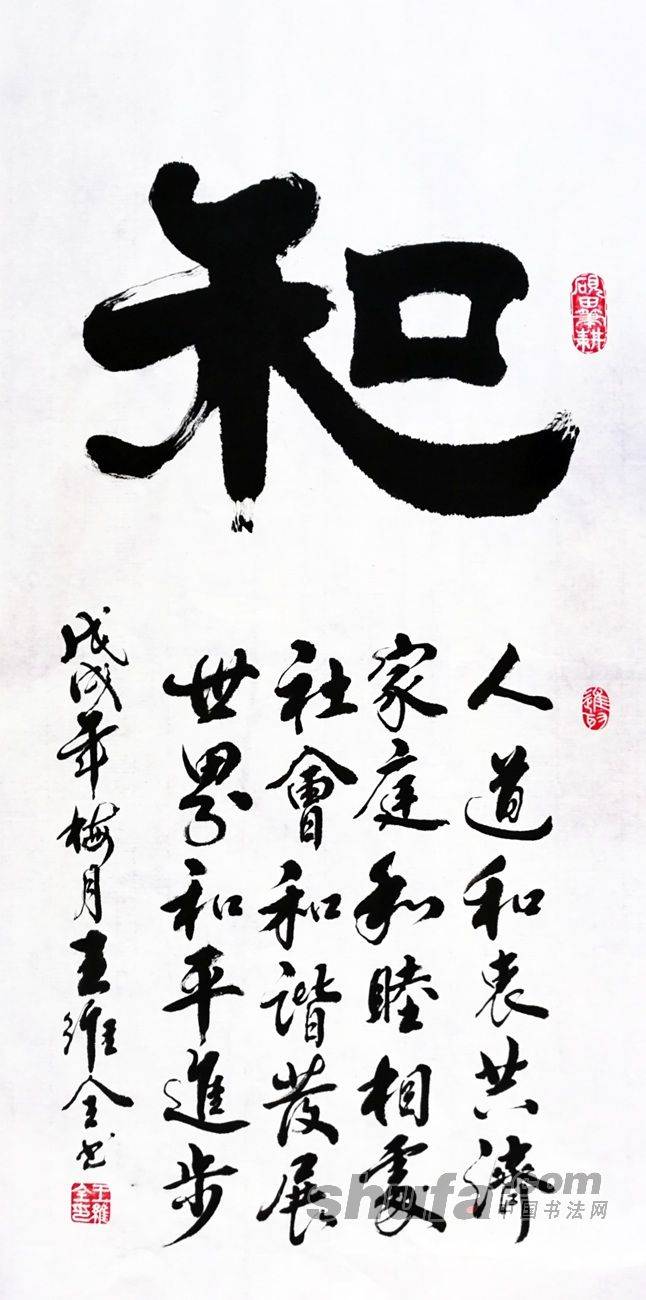 和
人道和衷共濟
家庭和睦相處
社會和諧發展
世界和平進步
戊戌年梅月王維全书
硯田筆耕
shufa.com
中国书法网